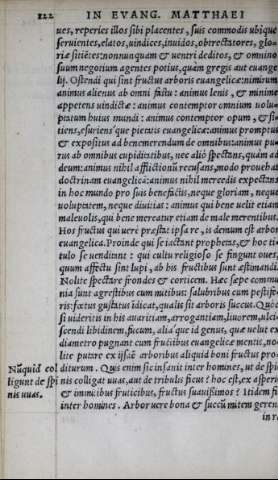 122 IN EVANG. MATTHAEI
ues, reperies illos sibi placentes, suis commodis ubique
seruientes, elatos, uindices, inuidos, obtrectatores, glo-
riæ sitiẽtes: nonnunquam & uentri deditos, & omnino
suum negotium agentes potius, quam gregis aut euange
lij. Ostendi qui sint fructus arboris euangelicæ: nimirum
animus alienus ab omni fastu: animus lenis, & minime
appetens uindictæ: animus contemptor omnium uolu-
ptatum huius mundi: animus contemptor opum, & si-
tiens, esuriensq́ue pietatis euangelicæ: animus promptus
& expositus ad benemerendum de omnibus: animus pu-
rus ab omnibus cupiditatibus, nec aliò spectans, quàm ad
deum: animus nihil afflictionis recusans, modo prouehat
doctrinam euangelicã: animus nihil mercedis expectans
in hoc mundo pro suis benefactis, neque gloriam, neque
uoluptatem, neque diuitias: animus qui bene uelit etiam
maleuolis, qui bene mereatur etiam de male merentibus.
Hos fructus qui uerè præstat ipsa re, is demum est arbor
euangelica. Proinde qui se iactant prophetas, & hoc ti-
tulo se uenditant: qui cultu religioso se fingunt oues,
quum affectu sint lupi, ab his fructibus sunt æstimandi.
Nolite spectare frondes & corticem. Hæc sæpe commu
nia sunt agrestibus cum mitibus: salubribus cum pestife-
ris: fœtus gustatus iudicat, qualis sit arboris succus. Quòd
si uideritis in his auaritiam, arrogantiam, liuorem, ulci-
scendi libidinem, fucum, aliaq́ue id genus, quæ uelut ex
diametro pugnant cum fructibus euangelicæ mentis, no-
lite putare ex ijsdẽ arboribus aliquid boni fructus pro-
Nũquid col diturum. Quis enim sic insanit inter homines, ut de spi
ligunt de spi nis colligat uuas, aut de tribulis ficus? hoc est, ex asperis
nis uuas. & immitibus fruticibus, fructus suauissimos? Itidem fit
inter homines. Arbor uere bona & succũ mitem gerens
in ra